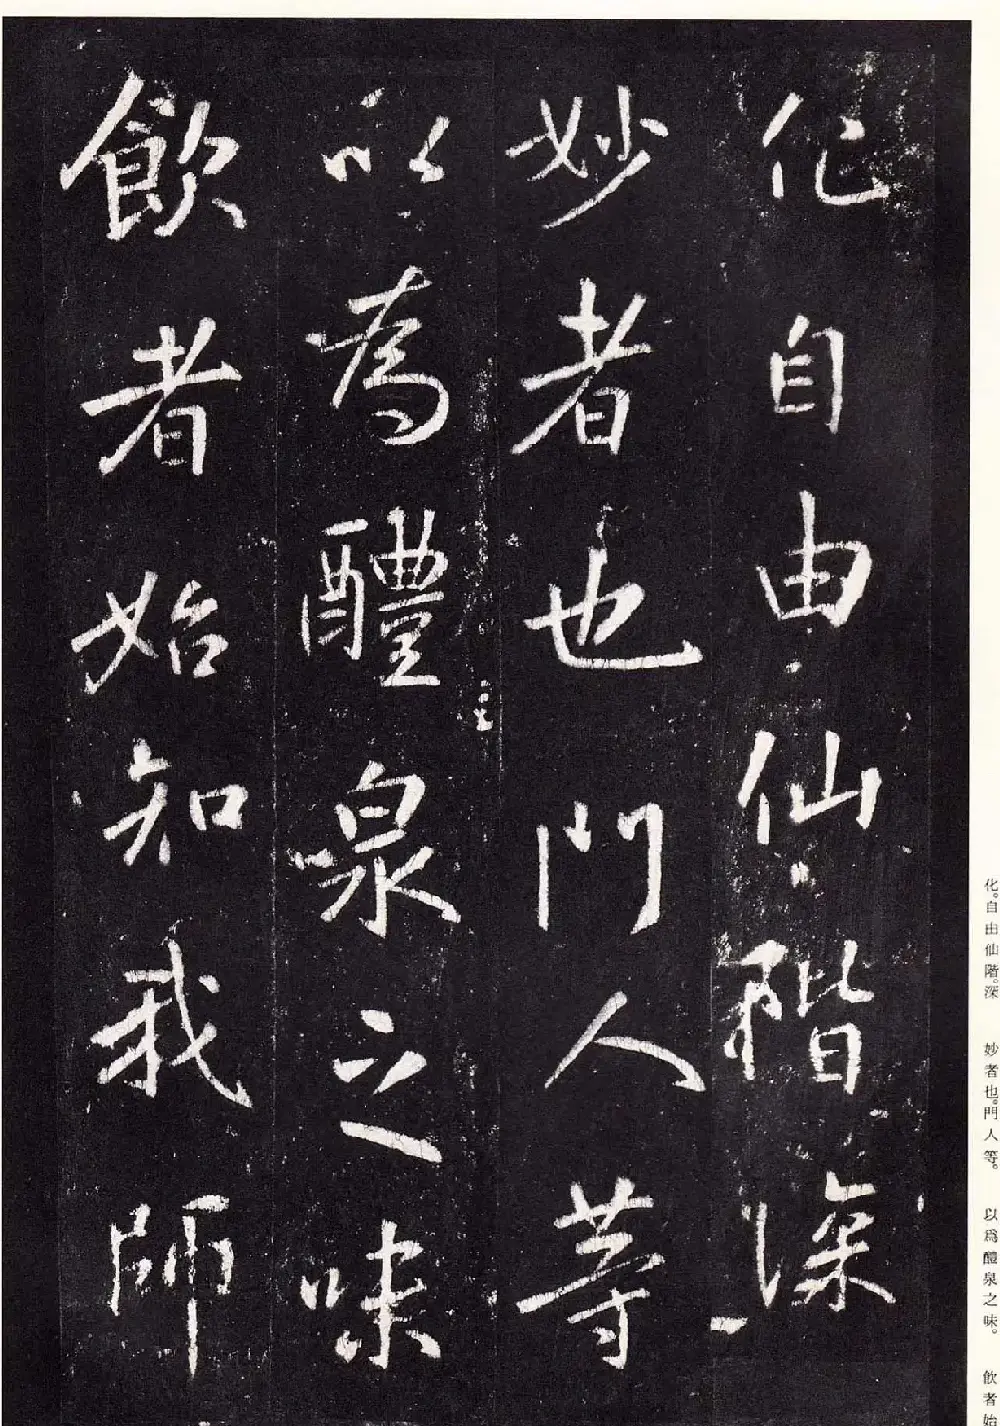 化自由仙階深
妙者也門人等
以為醴泉之味
飲者始知我師
化。自由仙階。深
妙者也。門人等。
以爲醴泉之味。
飲者始